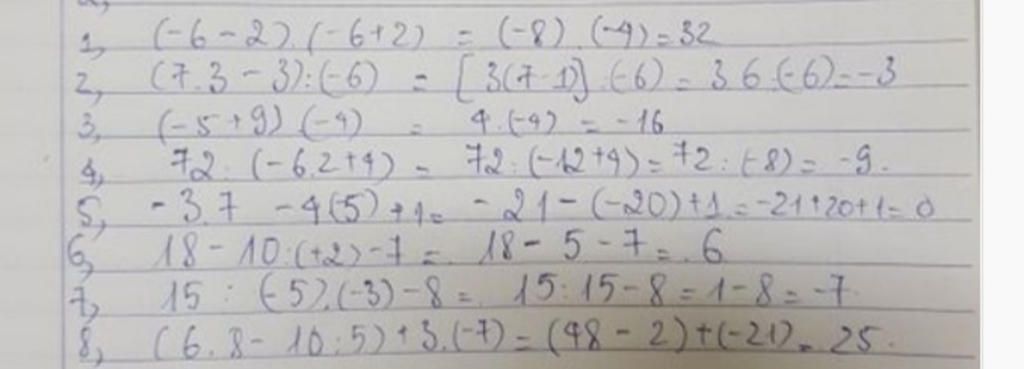 1, (-6-2).(-6+2) = (-8).(-4)=32
2, (7.3-3):(-6) = [3(7-1)]:(-6) = 3.6:(-6)=-3
3, (-5+9).(-4) = 4.(-4) = -16
4, 72:(-6.2+4) = 72:(-12+4)=72:(-8)= -9.
5, -3.7 -4(5)+1= -21-(-20)+1=-21+20+1=0
6, 18-10:(+2)-7= 18-5-7= 6
7, 15:(-5).(-3)-8= 15:15-8=1-8=-7
8, (6.8-10:5)+3.(-7)=(48-2)+(-21)= 25.